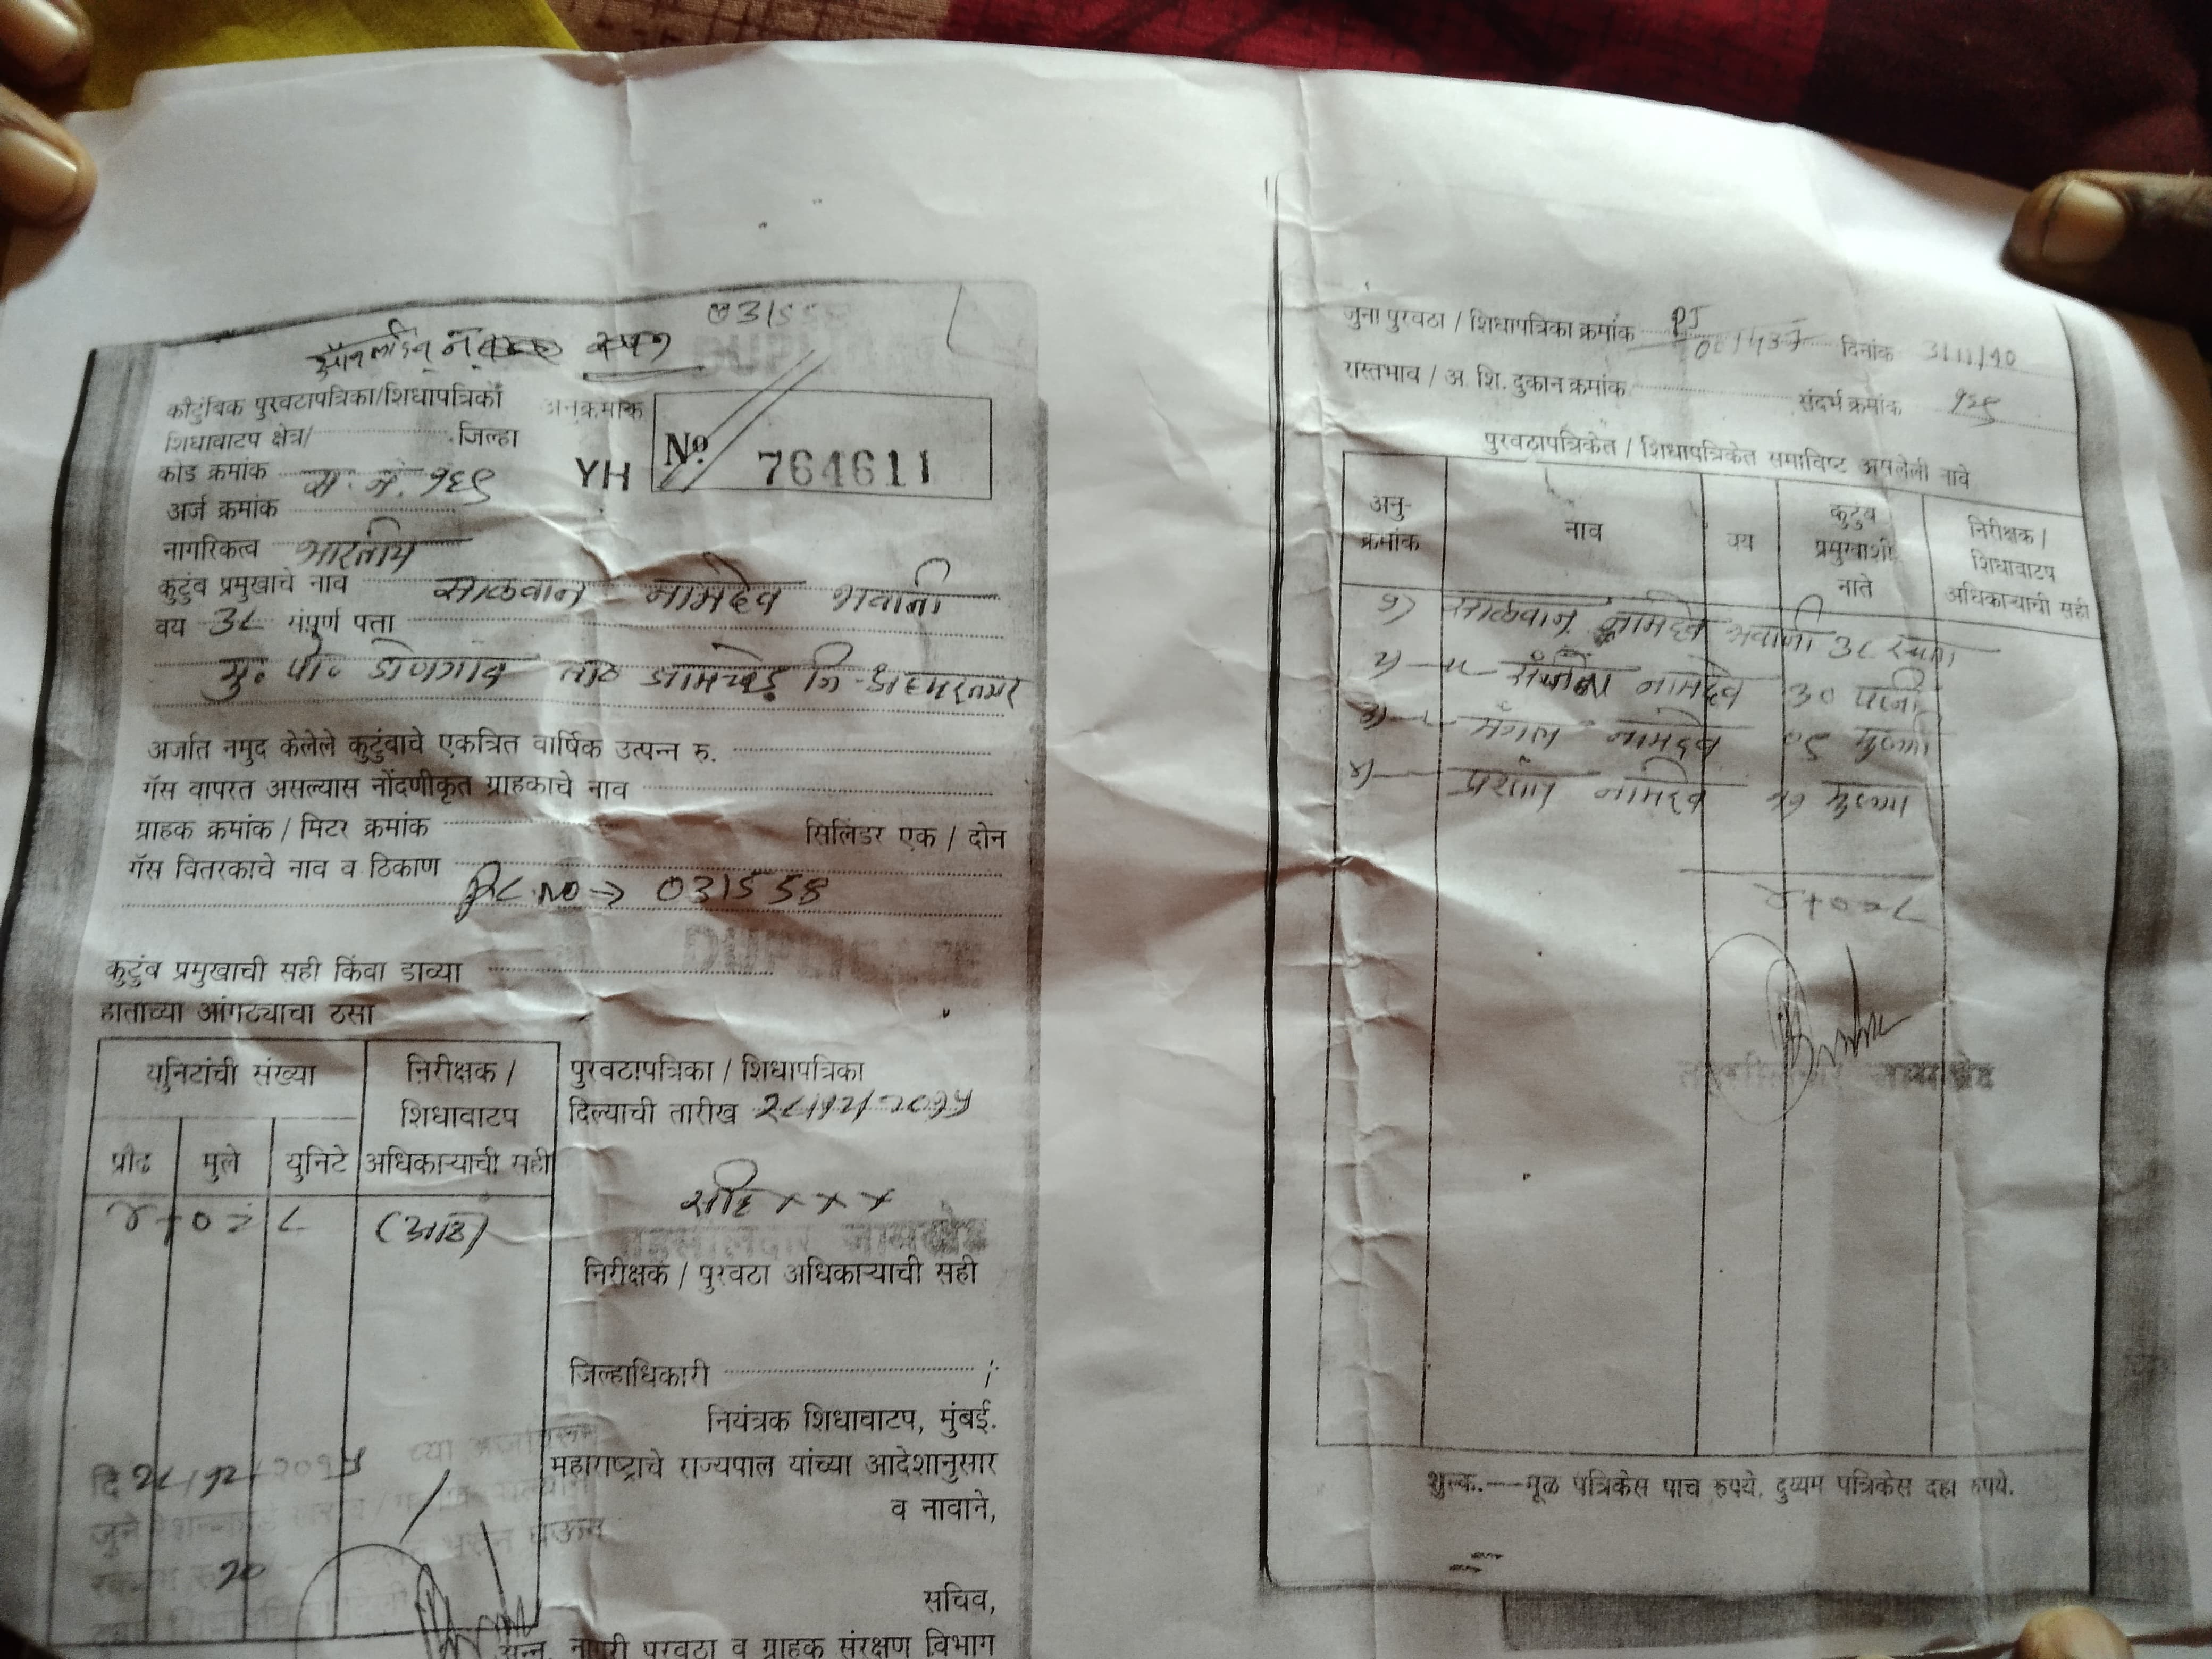 0315
कौटुंबिक पुरवठापत्रिका/शिधापत्रिका अनुक्रमांक
शिधावाटप क्षेत्र/ जिल्हा
YH No 764611
कोड क्रमांक
१६९
अर्ज क्रमांक
नागरिकत्व भारतीय
कुटुंब प्रमुखाचे नाव साळवान नामदेव भवानी
वय ३८ संपूर्ण पत्ता
मु. पो. डोणगाव ता जामखेड जि-अहमदनगर
अर्जात नमुद केलेले कुटुंबाचे एकत्रित वार्षिक उत्पन्न रु.
गॅस वापरत असल्यास नोंदणीकृत ग्राहकाचे नाव
ग्राहक क्रमांक / मिटर क्रमांक सिलिंडर एक / दोन
गॅस वितरकाचे नाव व ठिकाण
NO → 031558
कुटुंब प्रमुखाची सही किंवा डाव्या
हाताच्या आंगठ्याचा ठसा
युनिटांची संख्या
निरीक्षक /
शिधावाटप
अधिकाऱ्याची सही
प्रौढ मुले युनिटे
४+०=८ (आठ)
पुरवठापत्रिका / शिधापत्रिका
दिल्याची तारीख २८/१२/२०१५
सही x x x
तहसीलदार जामखेड
निरीक्षक / पुरवठा अधिकाऱ्याची सही
जिल्हाधिकारी
नियंत्रक शिधावाटप, मुंबई.
महाराष्ट्राचे राज्यपाल यांच्या आदेशानुसार
व नावाने,
सचिव,
अन्न, नागरी पुरवठा व ग्राहक संरक्षण विभाग
दि २८/१२/२०१५ च्या
२०
जुना पुरवठा / शिधापत्रिका क्रमांक PJ दिनांक 3/11/10
रास्तभाव / अ. शि. दुकान क्रमांक संदर्भ क्रमांक
पुरवठापत्रिकेत / शिधापत्रिकेत समाविष्ट असलेली नावे
अनु-
क्रमांक
नाव
वय
कुटुंब
प्रमुखाशी
नाते
निरीक्षक /
शिधावाटप
अधिकाऱ्याची सही
१) साळवान नामदेव भवानी ३८ स्वतः
२) नामदेव ३० पत्नी
३) मंगल नामदेव ०९ मुलगी
४) प्रशांत नामदेव मुलगा
४+०=८
तहसीलदार जामखेड
शुल्क.—मूळ पत्रिकेस पाच रुपये. दुय्यम पत्रिकेस दहा रुपये.